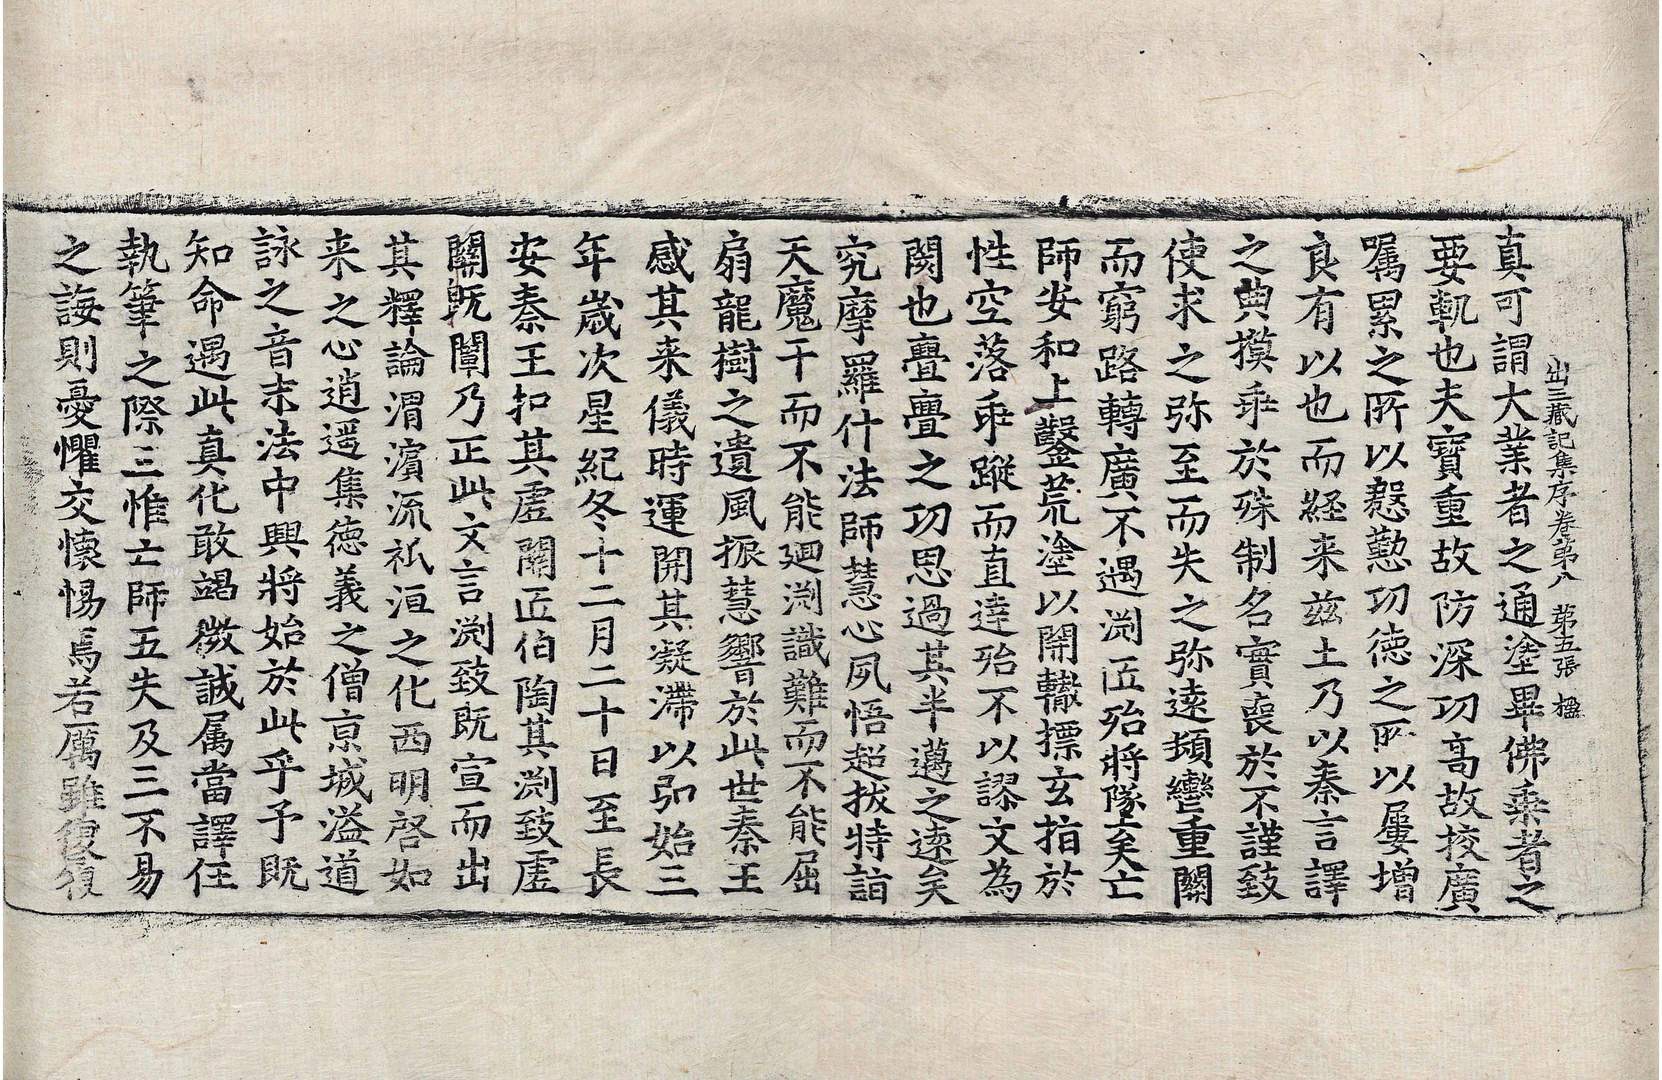 出三藏記集序卷第八 第五張 楹
真可謂大業者之通塗畢佛乘者之
要軌也夫寶重故防深功高故挍廣
囑累之所以慇懃功德之所以屢增
良有以也而経来茲土乃以秦言譯
之典摸乖於殊制名實喪於不謹致
使求之弥至而失之弥遠頻轡重關
而窮路轉廣不遇渕匠殆將隊矣亡
師安和上鑿荒塗以開轍摽玄指於
性空落乖蹤而直達殆不以謬文為
閡也亹亹之功思過其半邁之遠矣
究摩羅什法師慧心夙悟超拔特詣
天魔干而不能廻渕識難而不能屈
扇龍樹之遺風振慧響於此世秦王
感其来儀時運開其凝滯以弘始三
年歲次星紀冬十二月二十日至長
安秦王扣其虛關匠伯陶其渕致虛
關旣闡乃正此文言渕致既宣而出
其釋論渭濵流祇洹之化西明啓如
来之心逍遥集德義之僧京城溢道
詠之音末法中興將始於此乎予既
知命遇此真化敢竭微誠属當譯任
執筆之際三惟亡師五失及三不易
之誨則憂懼交懷惕焉若厲雖復復